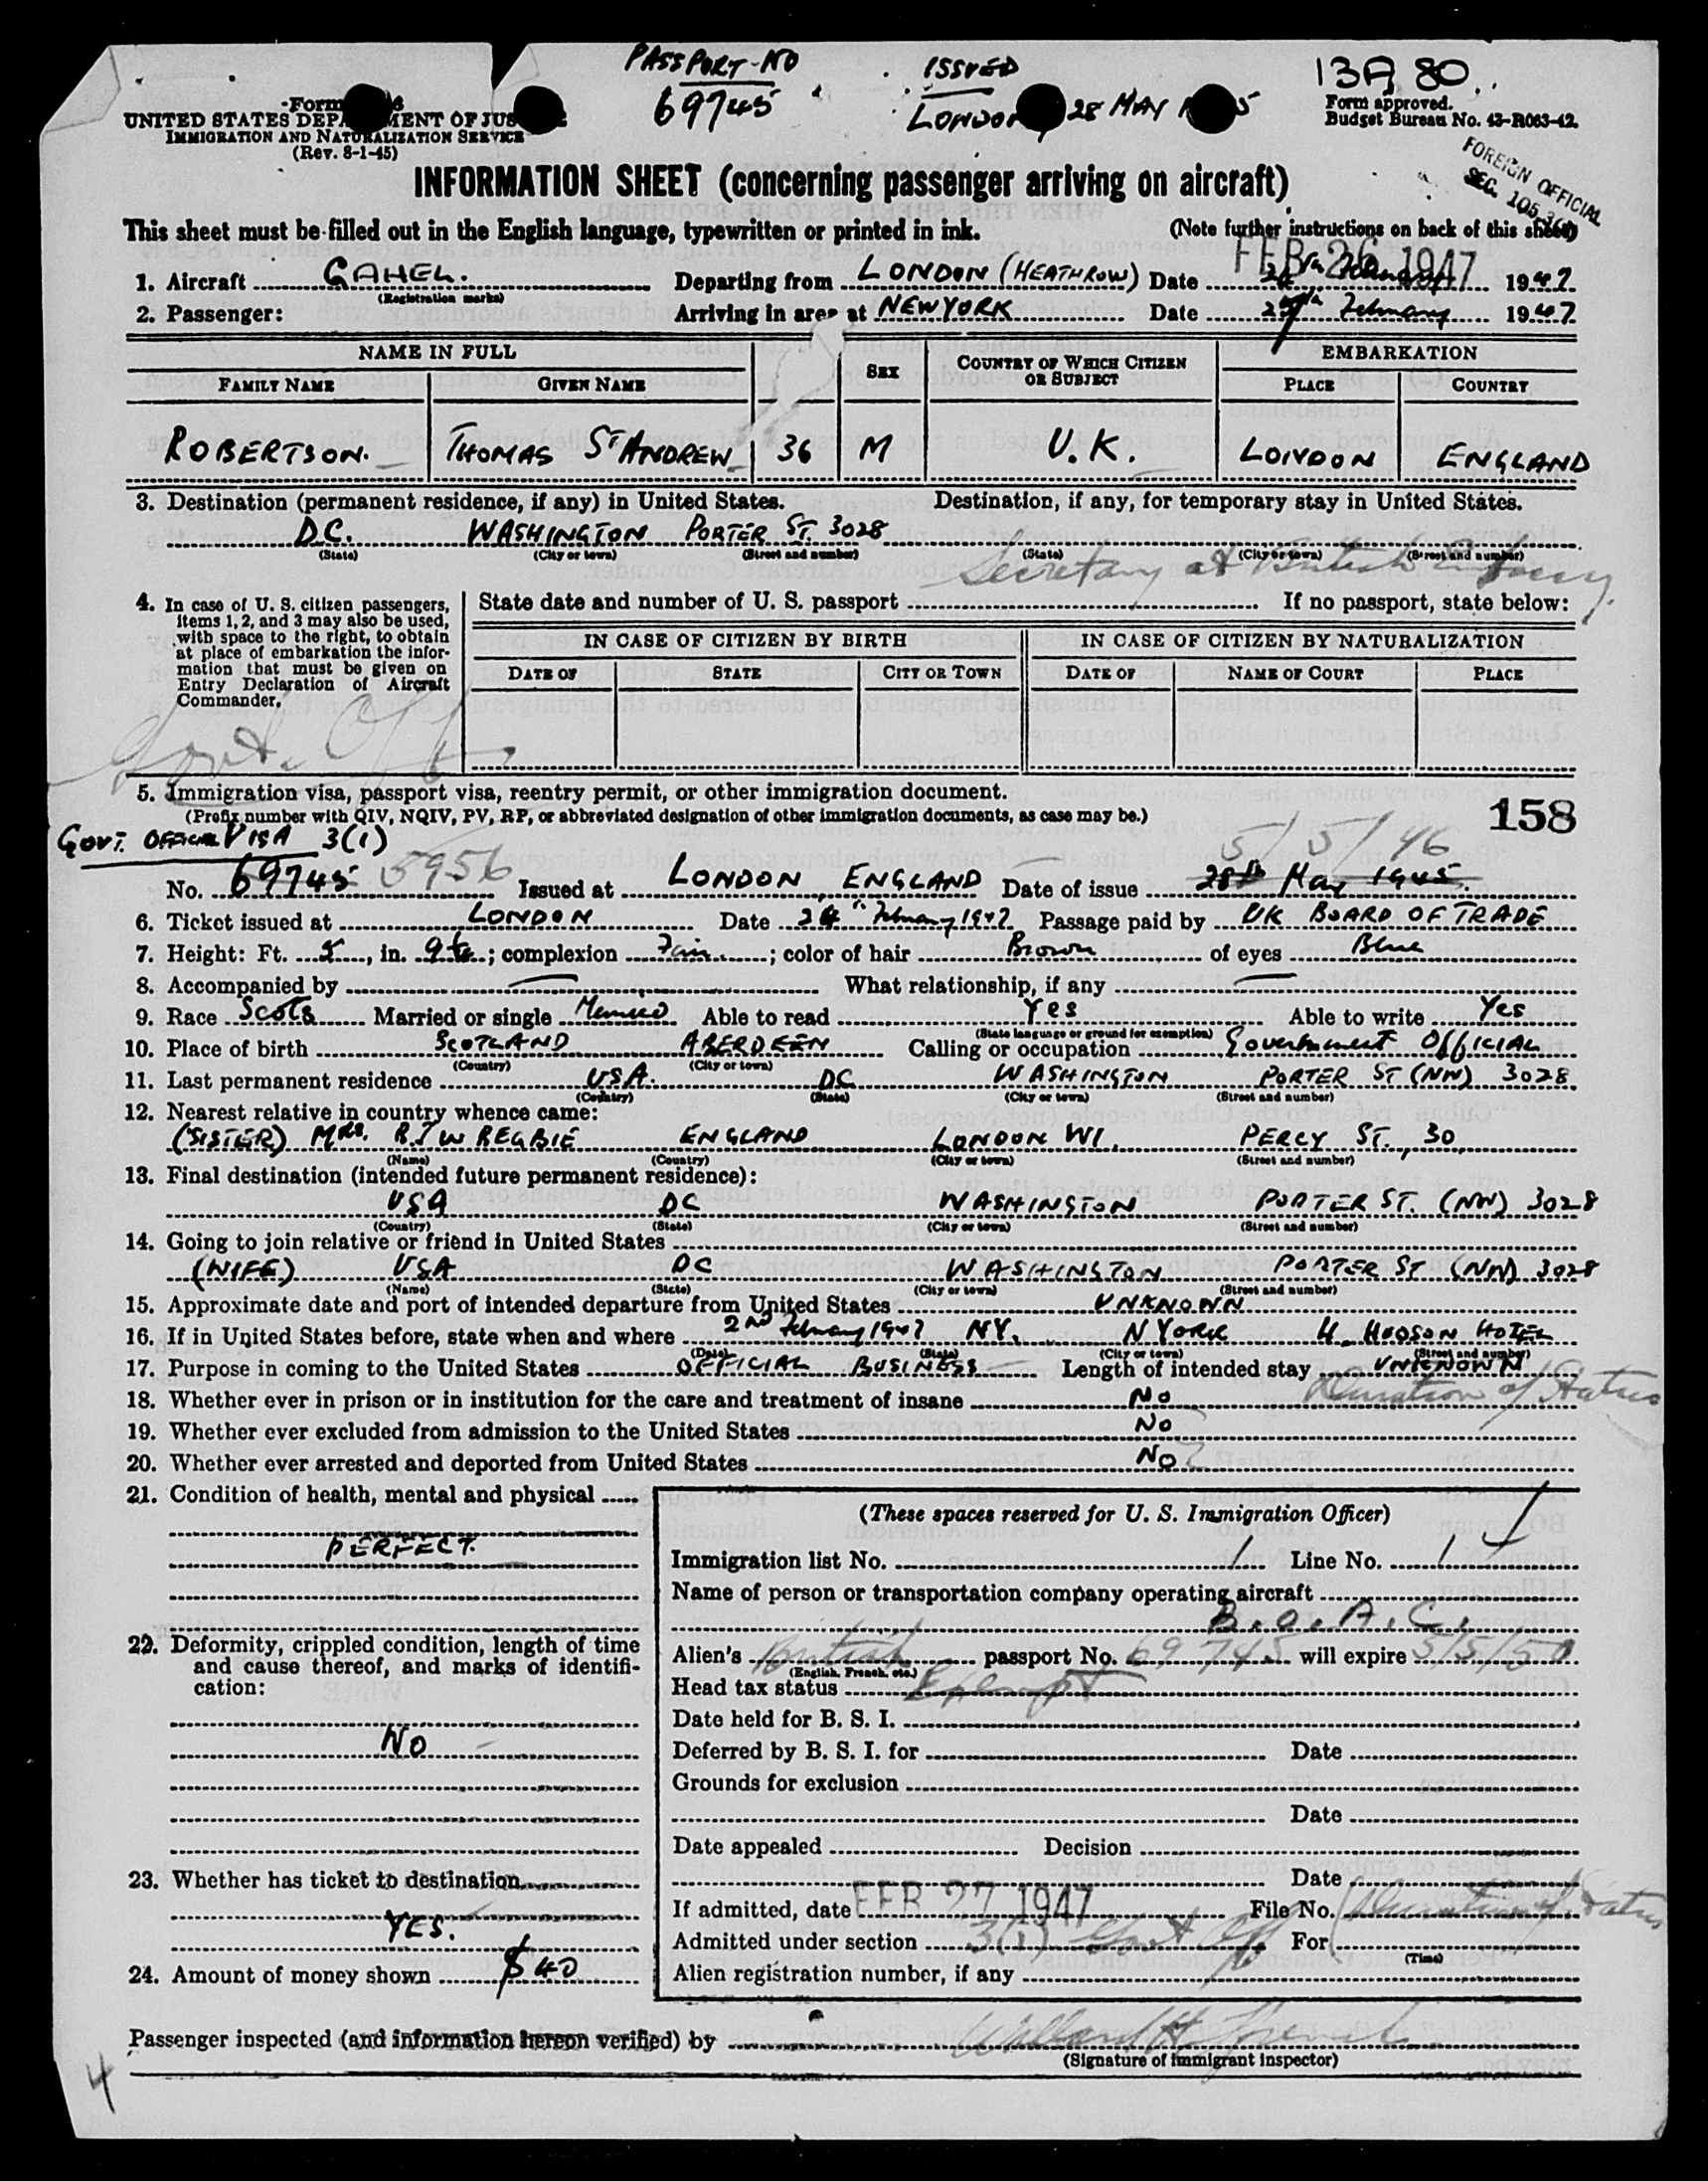 PASSPORT NO
69745
ISSUED
LONDON 28 MAY
13A 80
Form
UNITED STATES DEPARTMENT OF JUSTICE
IMMIGRATION AND NATURALIZATION SERVICE
(Rev. 8-1-45)
Form approved.
Budget Bureau No. 43-R063-42.
FOREIGN OFFICIAL
SEC. 105.3
INFORMATION SHEET (concerning passenger arriving on aircraft)
This sheet must be filled out in the English language, typewritten or printed in ink. (Note further instructions on back of this sheet)
FEB 26 1947
1. Aircraft GAHEL. Departing from LONDON (HEATHROW) Date February 1947
(Registration marks)
2. Passenger: Arriving in area at NEW YORK Date February 1947
NAME IN FULL SEX COUNTRY OF WHICH CITIZEN OR SUBJECT EMBARKATION
FAMILY NAME GIVEN NAME PLACE COUNTRY
ROBERTSON. THOMAS ST ANDREW 36 M U.K. LONDON ENGLAND
3. Destination (permanent residence, if any) in United States. Destination, if any, for temporary stay in United States.
D.C. WASHINGTON PORTER ST. 3028
(State) (City or town) (Street and number) (State) (City or town) (Street and number)
Secretary at British Embassy.
4. In case of U. S. citizen passengers, items 1, 2, and 3 may also be used, with space to the right, to obtain at place of embarkation the information that must be given on Entry Declaration of Aircraft Commander.
State date and number of U. S. passport If no passport, state below:
IN CASE OF CITIZEN BY BIRTH IN CASE OF CITIZEN BY NATURALIZATION
DATE OF STATE CITY OR TOWN DATE OF NAME OF COURT PLACE
Govt. Off
5. Immigration visa, passport visa, reentry permit, or other immigration document.
(Prefix number with QIV, NQIV, PV, RP, or abbreviated designation of other immigration documents, as case may be.)
158
GOVT. OFFICIAL VISA 3(1)
5/5/46
No. 69745 5956 Issued at LONDON, ENGLAND Date of issue 28th May 1945.
6. Ticket issued at LONDON Date 24th February 1947 Passage paid by UK BOARD OF TRADE
7. Height: Ft. 5, in. 9; complexion Fair; color of hair Brown of eyes Blue
8. Accompanied by — What relationship, if any —
9. Race Scots Married or single Married Able to read Yes Able to write Yes
(State language or ground for exemption)
10. Place of birth SCOTLAND ABERDEEN Calling or occupation Government OFFICIAL
(Country) (City or town)
11. Last permanent residence USA. DC WASHINGTON PORTER ST (NW) 3028
(Country) (State) (City or town) (Street and number)
12. Nearest relative in country whence came:
(SISTER) MRS. R.J.W REGBIE ENGLAND LONDON W1. PERCY ST., 30
(Name) (Country) (City or town) (Street and number)
13. Final destination (intended future permanent residence):
USA DC WASHINGTON PORTER ST. (NW) 3028
(Country) (State) (City or town) (Street and number)
14. Going to join relative or friend in United States
(WIFE) USA DC WASHINGTON PORTER ST (NW) 3028
(Name) (State) (City or town) (Street and number)
15. Approximate date and port of intended departure from United States UNKNOWN
16. If in United States before, state when and where 2nd February 1947 NY. N YORK H. HUDSON HOTEL
(Date) (State) (City or town) (Street and number)
17. Purpose in coming to the United States OFFICIAL BUSINESS Length of intended stay UNKNOWN
Duration of Status
18. Whether ever in prison or in institution for the care and treatment of insane No
19. Whether ever excluded from admission to the United States No
20. Whether ever arrested and deported from United States No
21. Condition of health, mental and physical
PERFECT.
22. Deformity, crippled condition, length of time and cause thereof, and marks of identification:
No
23. Whether has ticket to destination
YES.
24. Amount of money shown $40
(These spaces reserved for U. S. Immigration Officer)
Immigration list No. 1 Line No. 1
Name of person or transportation company operating aircraft
B.O.A.C.
Alien's British passport No. 69745 will expire 5/5/50
(English, French, etc.)
Head tax status Exempt
Date held for B. S. I.
Deferred by B. S. I. for Date
Grounds for exclusion
Date
Date appealed Decision
Date
If admitted, date FEB 27 1947 File No. Duration of Status
Admitted under section 3(1) Govt Off For
(Time)
Alien registration number, if any
Passenger inspected (and information hereon verified) by
(Signature of immigrant inspector)
4